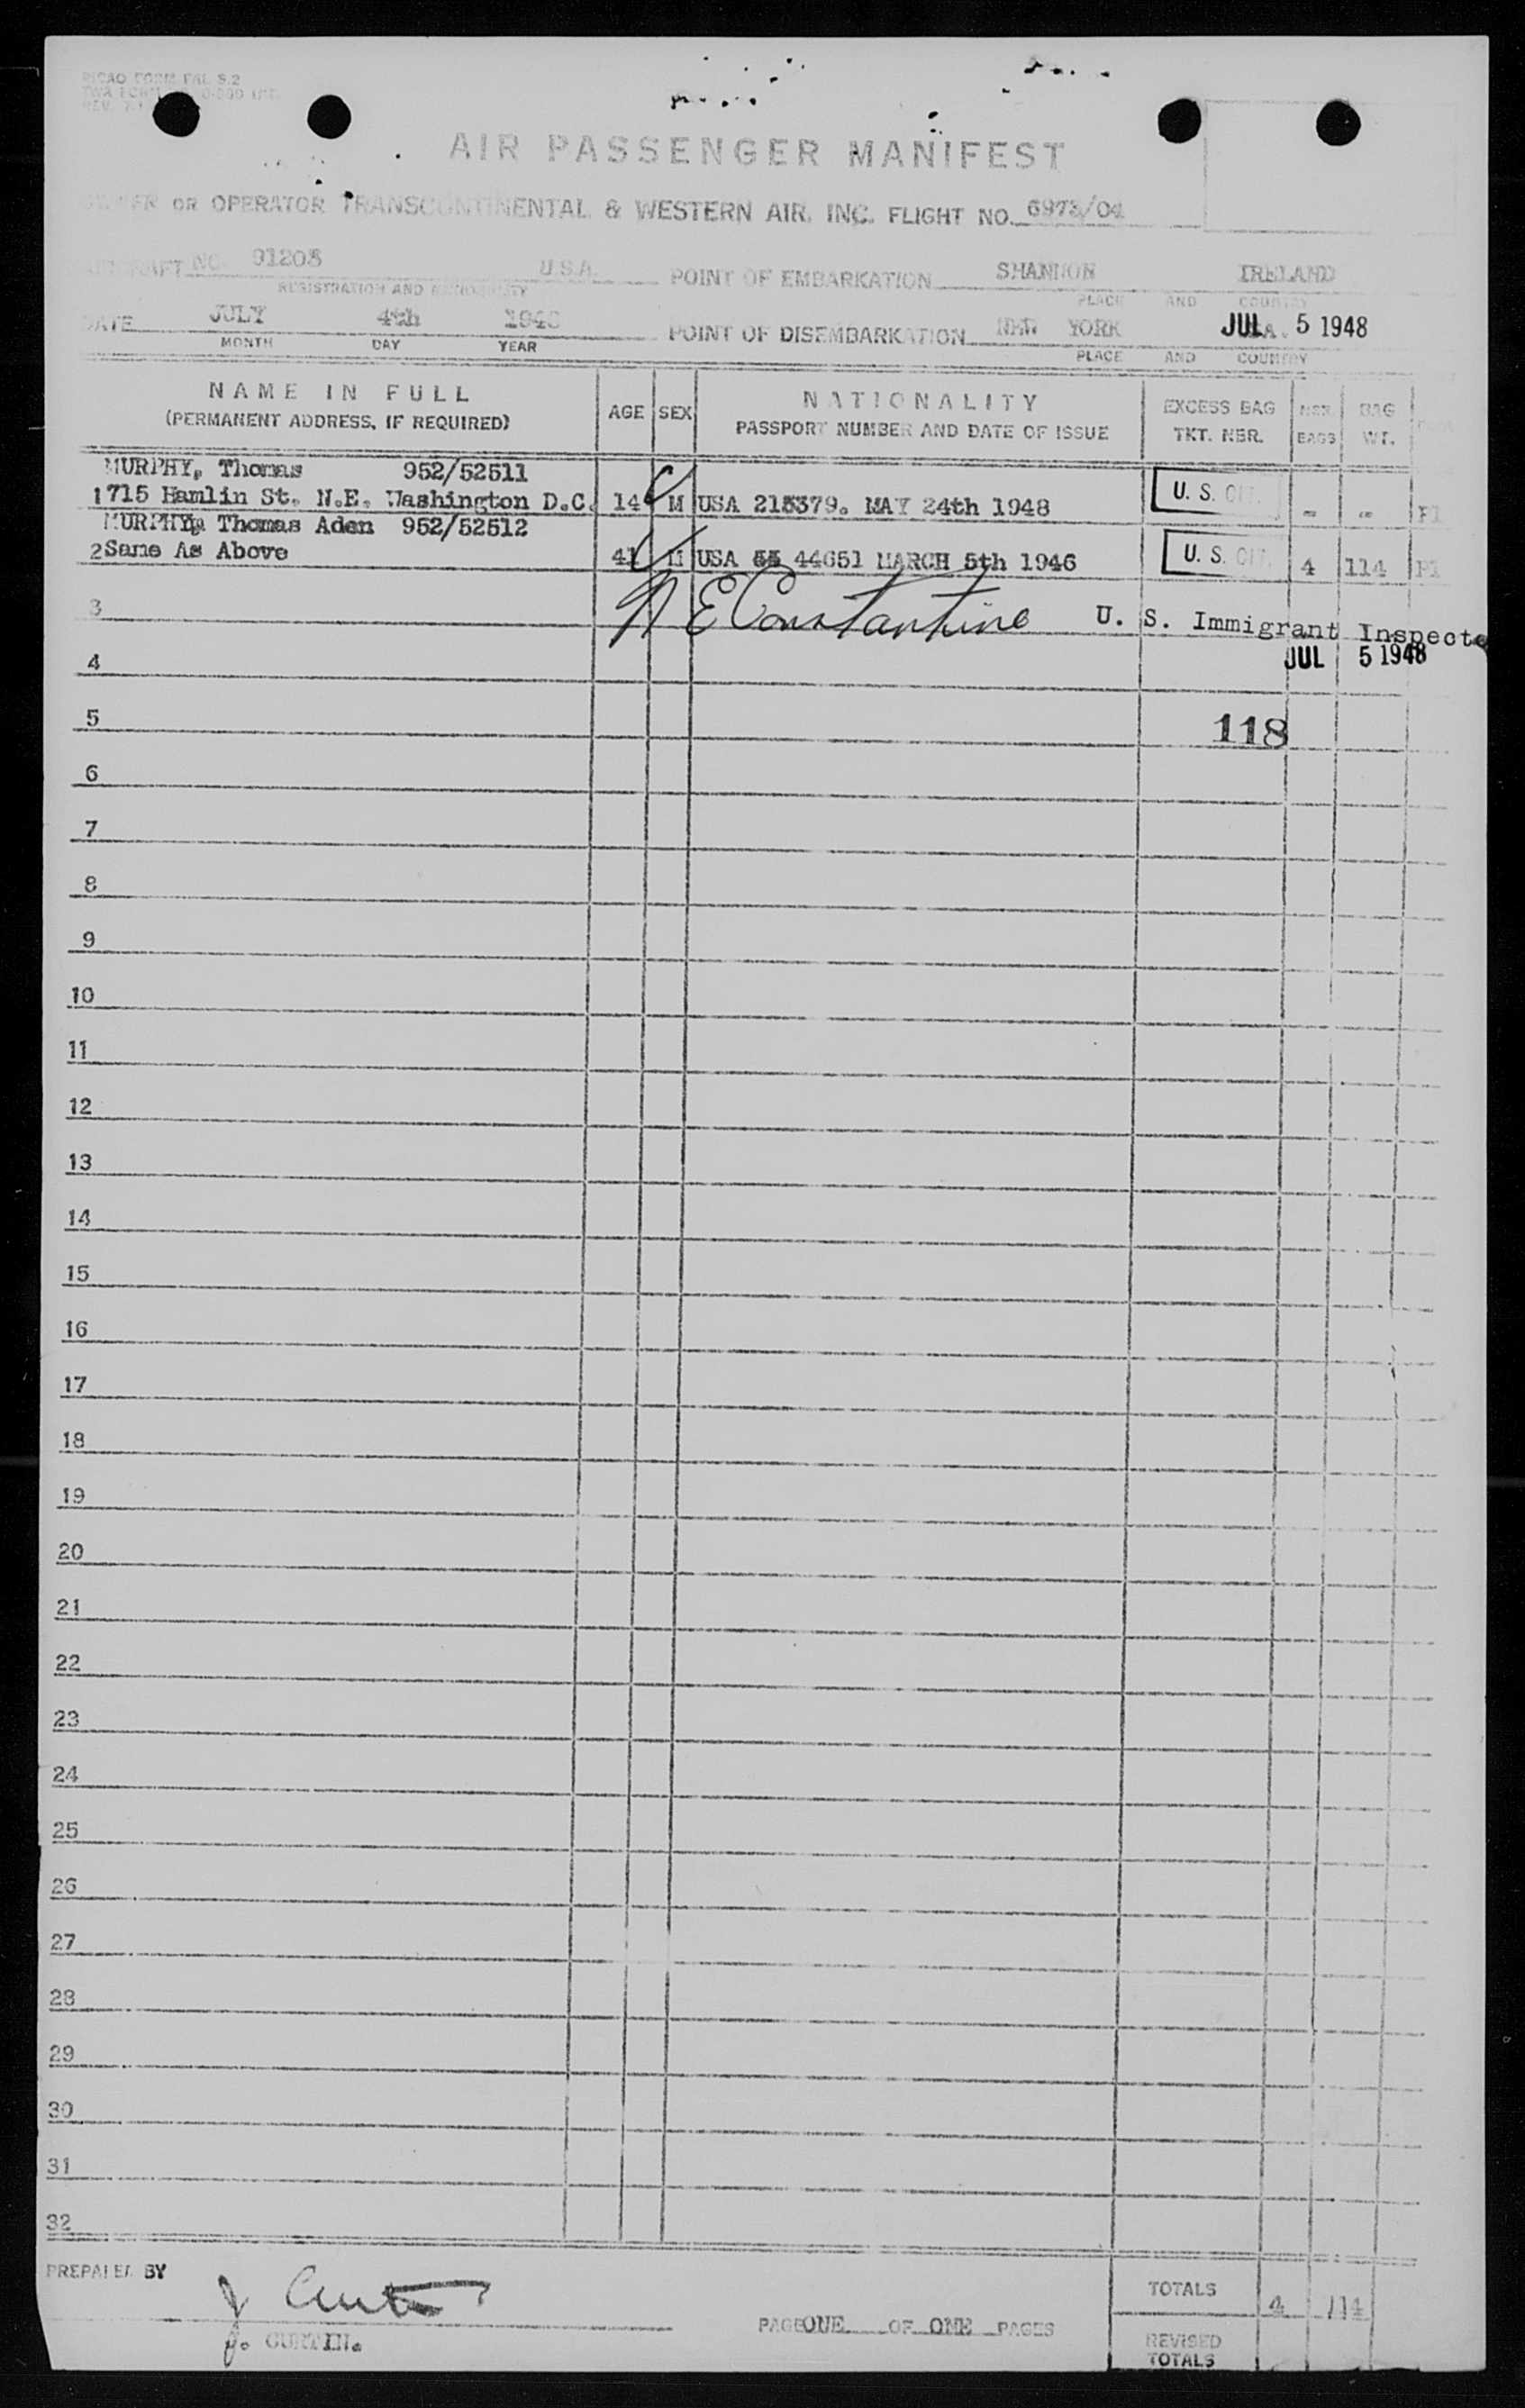 AIR PASSENGER MANIFEST
OR OPERATOR TRANSCONTINENTAL & WESTERN AIR, INC. FLIGHT NO.
NO. U.S.A. POINT OF EMBARKATION SHANNON IRELAND
REGISTRATION AND PLACE AND COUNTRY
DATE JULY 4th POINT OF DISEMBARKATION NEW YORK JUL 5 1948
MONTH DAY YEAR PLACE AND COUNTRY
NAME IN FULL AGE SEX NATIONALITY EXCESS BAG NBR. BAG
(PERMANENT ADDRESS, IF REQUIRED) PASSPORT NUMBER AND DATE OF ISSUE TKT. NBR. BAGS WT.
MURPHY, Thomas 952/52511
1 715 Hamlin St. N.E. Washington D.C. 14 M USA MAY 24th 1948 U. S. - -
MURPHY, Thomas Aden 952/52512
2 Same As Above 41 M USA 44651 MARCH 5th 1946 U. S. 4 114
3 N E Constantine U. S. Immigrant Inspecto
4 JUL 5 1948
5 118
6
7
8
9
10
11
12
13
14
15
16
17
18
19
20
21
22
23
24
25
26
27
28
29
30
31
32
PREPARED BY TOTALS 4 114
PAGE ONE OF ONE PAGES
J. CURTIN. REVISED
TOTALS